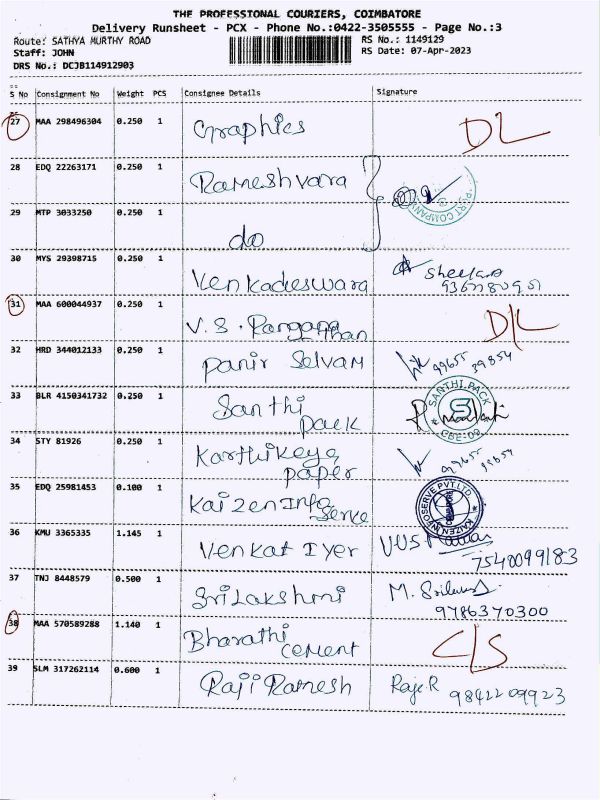 THE PROFESSIONAL COURIERS, COIMBATORE
Delivery Runsheet - PCX - Phone No.:0422-3505555 - Page No.:3
Route: SATHYA MURTHY ROAD RS No.: 1149129
Staff: JOHN RS Date: 07-Apr-2023
DRS No.: DCJB114912903
S No Consignment No Weight PCS Consignee Details Signature
27 MAA 298496304 0.250 1 Graphics DL
28 EDQ 22263171 0.250 1 Rameshvara
29 MTP 3033250 0.250 1 do
30 MYS 29398715 0.250 1 Venkadeswara
31 MAA 600044937 0.250 1 V.S. Rangana than D/L
32 HRD 344012133 0.250 1 Panir Selvam 99655 39854
33 BLR 4150341732 0.250 1 Santhi pack SANTHI PACK CBE-09
34 STY 81926 0.250 1 Karthikeya paper
35 EDQ 25981453 0.100 1 Kaizen Info Serve KAIZEN INFOSERVE PVT.LTD
36 KMU 3365335 1.145 1 Venkat Iyer 7540099183
37 TNJ 8448579 0.500 1 Sri Lakshmi M. 9786370300
38 MAA 570589288 1.140 1 Bharathi cement C/S
39 SLM 317262114 0.600 1 Raji Ramesh Raje.R 9842209923